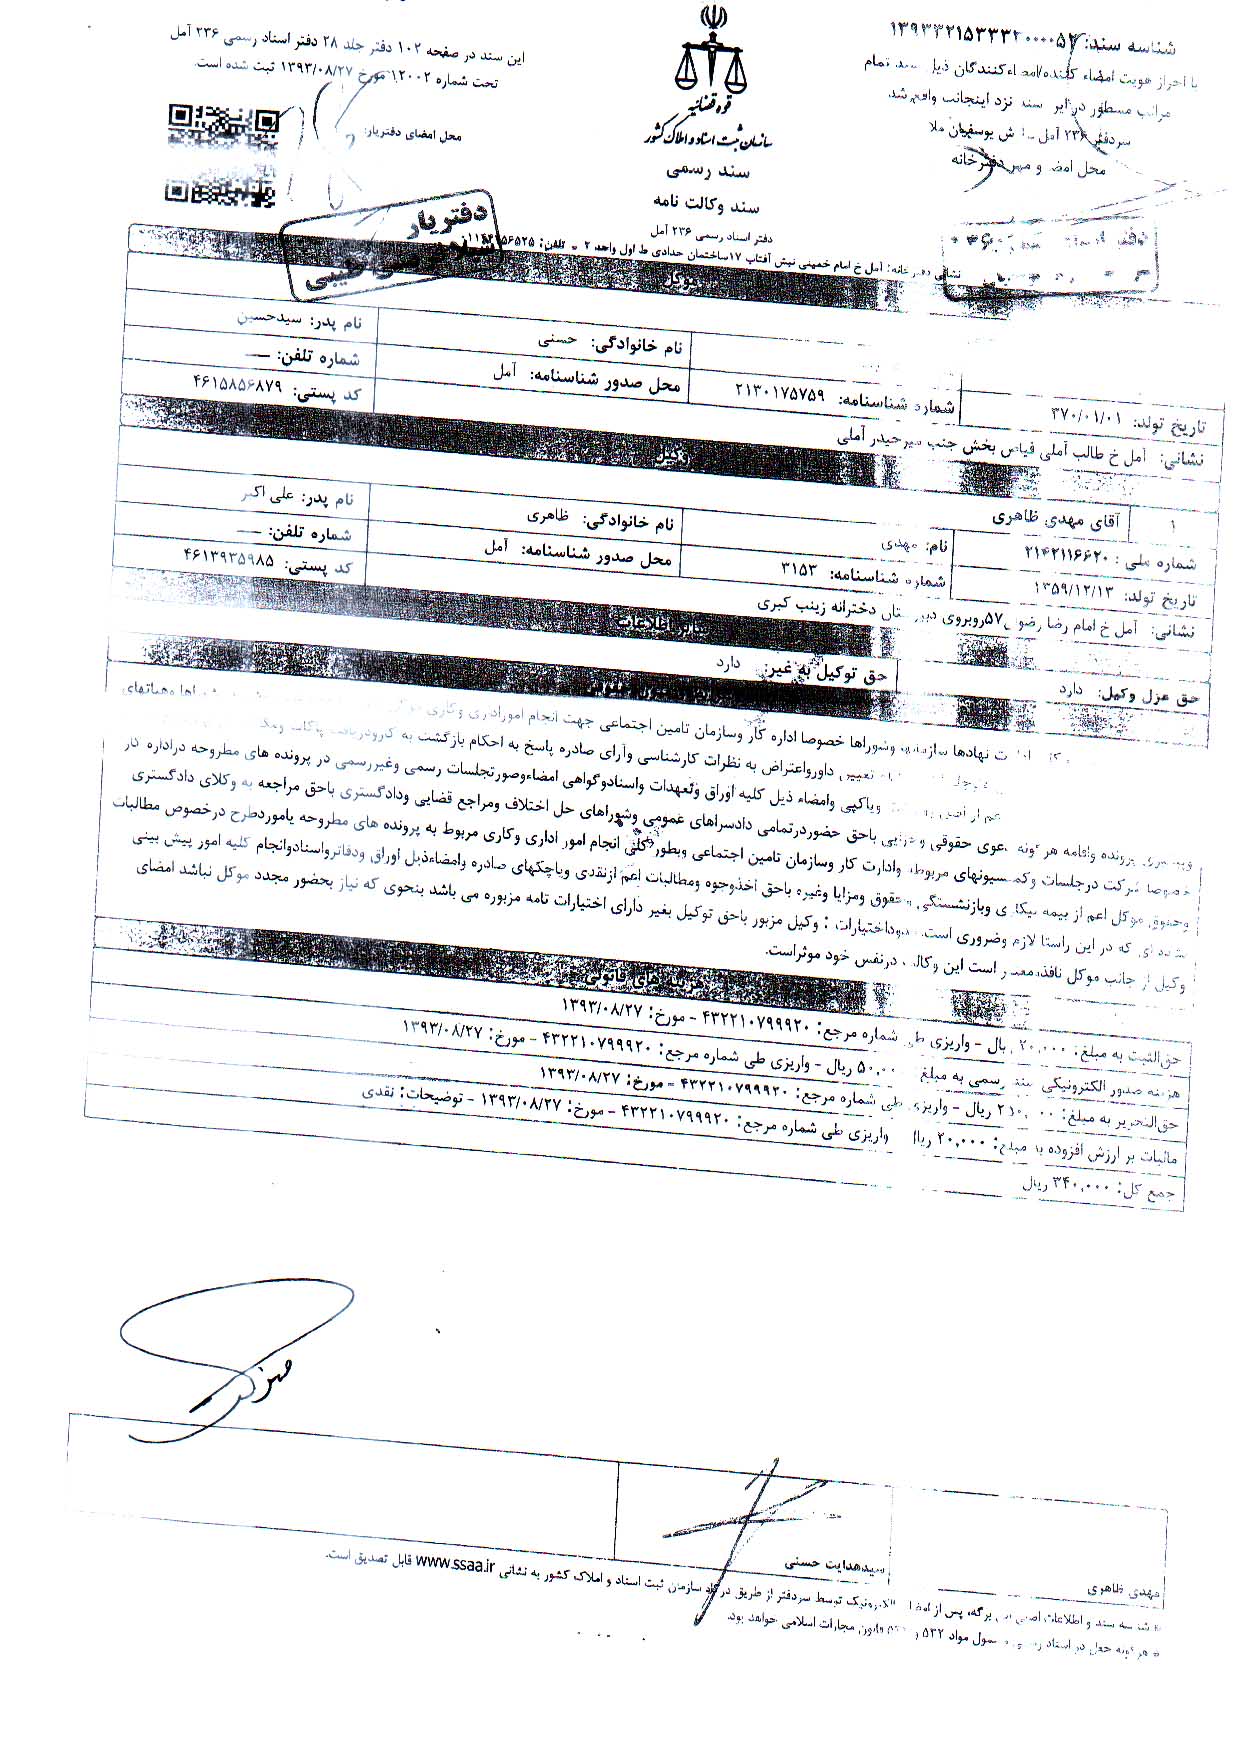 شناسه سند: ۱۳۹۳۳۲۱۵۳۳۳۲۰۰۰۰۵۲
با احراز هویت امضاء کننده/امضاءکنندگان ذیل سند تمام
مراتب مسطور در این سند نزد اینجانب واقع شد.
سردفتر ۲۳۶ آمل یوسفیان ملا
محل امضا و مهر دفترخانه
قوه قضائیه
سازمان ثبت اسناد و املاک کشور
سند رسمی
سند وکالت نامه
دفتر اسناد رسمی ۲۳۶ آمل
نشانی دفترخانه: آمل خ امام خمینی نبش آفتاب ۱۷ساختمان حدادی ط اول واحد ۲ - تلفن:
این سند در صفحه ۱۰۲ دفتر جلد ۲۸ دفتر اسناد رسمی ۲۳۶ آمل
تحت شماره ۱۲۰۰۲ مورخ ۱۳۹۳/۰۸/۲۷ ثبت شده است.
محل امضای دفتریار:
دفتر یار
موکل
نام خانوادگی: حسنی
نام پدر: سیدحسین
تاریخ تولد: ۳۷۰/۰۱/۰۱
شماره شناسنامه: ۲۱۳۰۱۷۵۷۵۹
محل صدور شناسنامه: آمل
شماره تلفن: —
کد پستی: ۴۶۱۵۸۵۶۸۷۹
نشانی: آمل خ طالب آملی فیاض بخش جنب میرحیدر آملی
وکیل
۱ آقای مهدی ظاهری
شماره ملی : ۲۱۴۲۱۱۶۶۲۰
نام: مهدی
نام خانوادگی: ظاهری
نام پدر: علی اکبر
تاریخ تولد: ۱۳۵۹/۱۲/۱۳
شماره شناسنامه: ۳۱۵۳
محل صدور شناسنامه: آمل
شماره تلفن: —
کد پستی: ۴۶۱۳۹۳۵۹۸۵
نشانی: آمل خ امام رضا رضوان ۵۷روبروی دبیرستان دخترانه زینب کبری
سایر اطلاعات
حق عزل وکیل: دارد
حق توکیل به غیر: دارد
نهادها سازمانها وشوراها خصوصا اداره کار وسازمان تامین اجتماعی جهت انجام اموراداری وکاری
تعیین داورواعتراض به نظرات کارشناسی وآرای صادره پاسخ به احکام بازگشت به کارودریافت
عم از اصل ویاکپی وامضاء ذیل کلیه اوراق وتعهدات واسنادوگواهی امضاءوصورتجلسات رسمی وغیررسمی در پرونده های مطروحه دراداره کار
وپیگیری پرونده واقامه هر گونه دعوی حقوقی و جزایی باحق حضوردرتمامی دادسراهای عمومی وشوراهای حل اختلاف ومراجع قضایی ودادگستری باحق مراجعه به وکلای دادگستری
خصوصا شرکت درجلسات وکمسیونهای مربوطه وادارت کار وسازمان تامین اجتماعی وبطور کلی انجام امور اداری وکاری مربوط به پرونده های مطروحه یاموردطرح درخصوص مطالبات
وحقوق موکل اعم از بیمه بیکاری وبازنشستگی وحقوق ومزایا وغیره باحق اخذوجوه ومطالبات اعم ازنقدی ویاچکهای صادره وامضاءذیل اوراق ودفاترواسنادوانجام کلیه امور پیش بینی
نشده ای که در این راستا لازم وضروری است. حدوداختیارات : وکیل مزبور باحق توکیل بغیر دارای اختیارات تامه مزبوره می باشد بنحوی که نیاز بحضور مجدد موکل نباشد امضای
وکیل از جانب موکل نافذومعتبر است این وکالت درنفس خود موثراست.
هزینه های قانونی
حق‌الثبت به مبلغ: ۲۰,۰۰۰ ریال - واریزی طی شماره مرجع: ۴۳۲۲۱۰۷۹۹۹۲۰ - مورخ: ۱۳۹۳/۰۸/۲۷
هزینه صدور الکترونیکی سند رسمی به مبلغ ۵۰,۰۰۰ ریال - واریزی طی شماره مرجع: ۴۳۲۲۱۰۷۹۹۹۲۰ - مورخ: ۱۳۹۳/۰۸/۲۷
حق‌التحریر به مبلغ: ۲۵۰,۰۰۰ ریال - واریزی طی شماره مرجع: ۴۳۲۲۱۰۷۹۹۹۲۰ - مورخ: ۱۳۹۳/۰۸/۲۷
مالیات بر ارزش افزوده به مبلغ: ۲۰,۰۰۰ ریال واریزی طی شماره مرجع: ۴۳۲۲۱۰۷۹۹۹۲۰ - مورخ: ۱۳۹۳/۰۸/۲۷ - توضیحات: نقدی
جمع کل: ۳۴۰,۰۰۰ ریال
مهدی ظاهری
سیدهدایت حسنی
* شناسه سند و اطلاعات اصلی این برگه، پس از امضا الکترونیک توسط سردفتر از طریق درگاه سازمان ثبت اسناد و املاک کشور به نشانی www.ssaa.ir قابل تصدیق است.
* هرگونه جعل در اسناد رسمی مشمول مواد ۵۳۲ و قانون مجازات اسلامی خواهد بود.